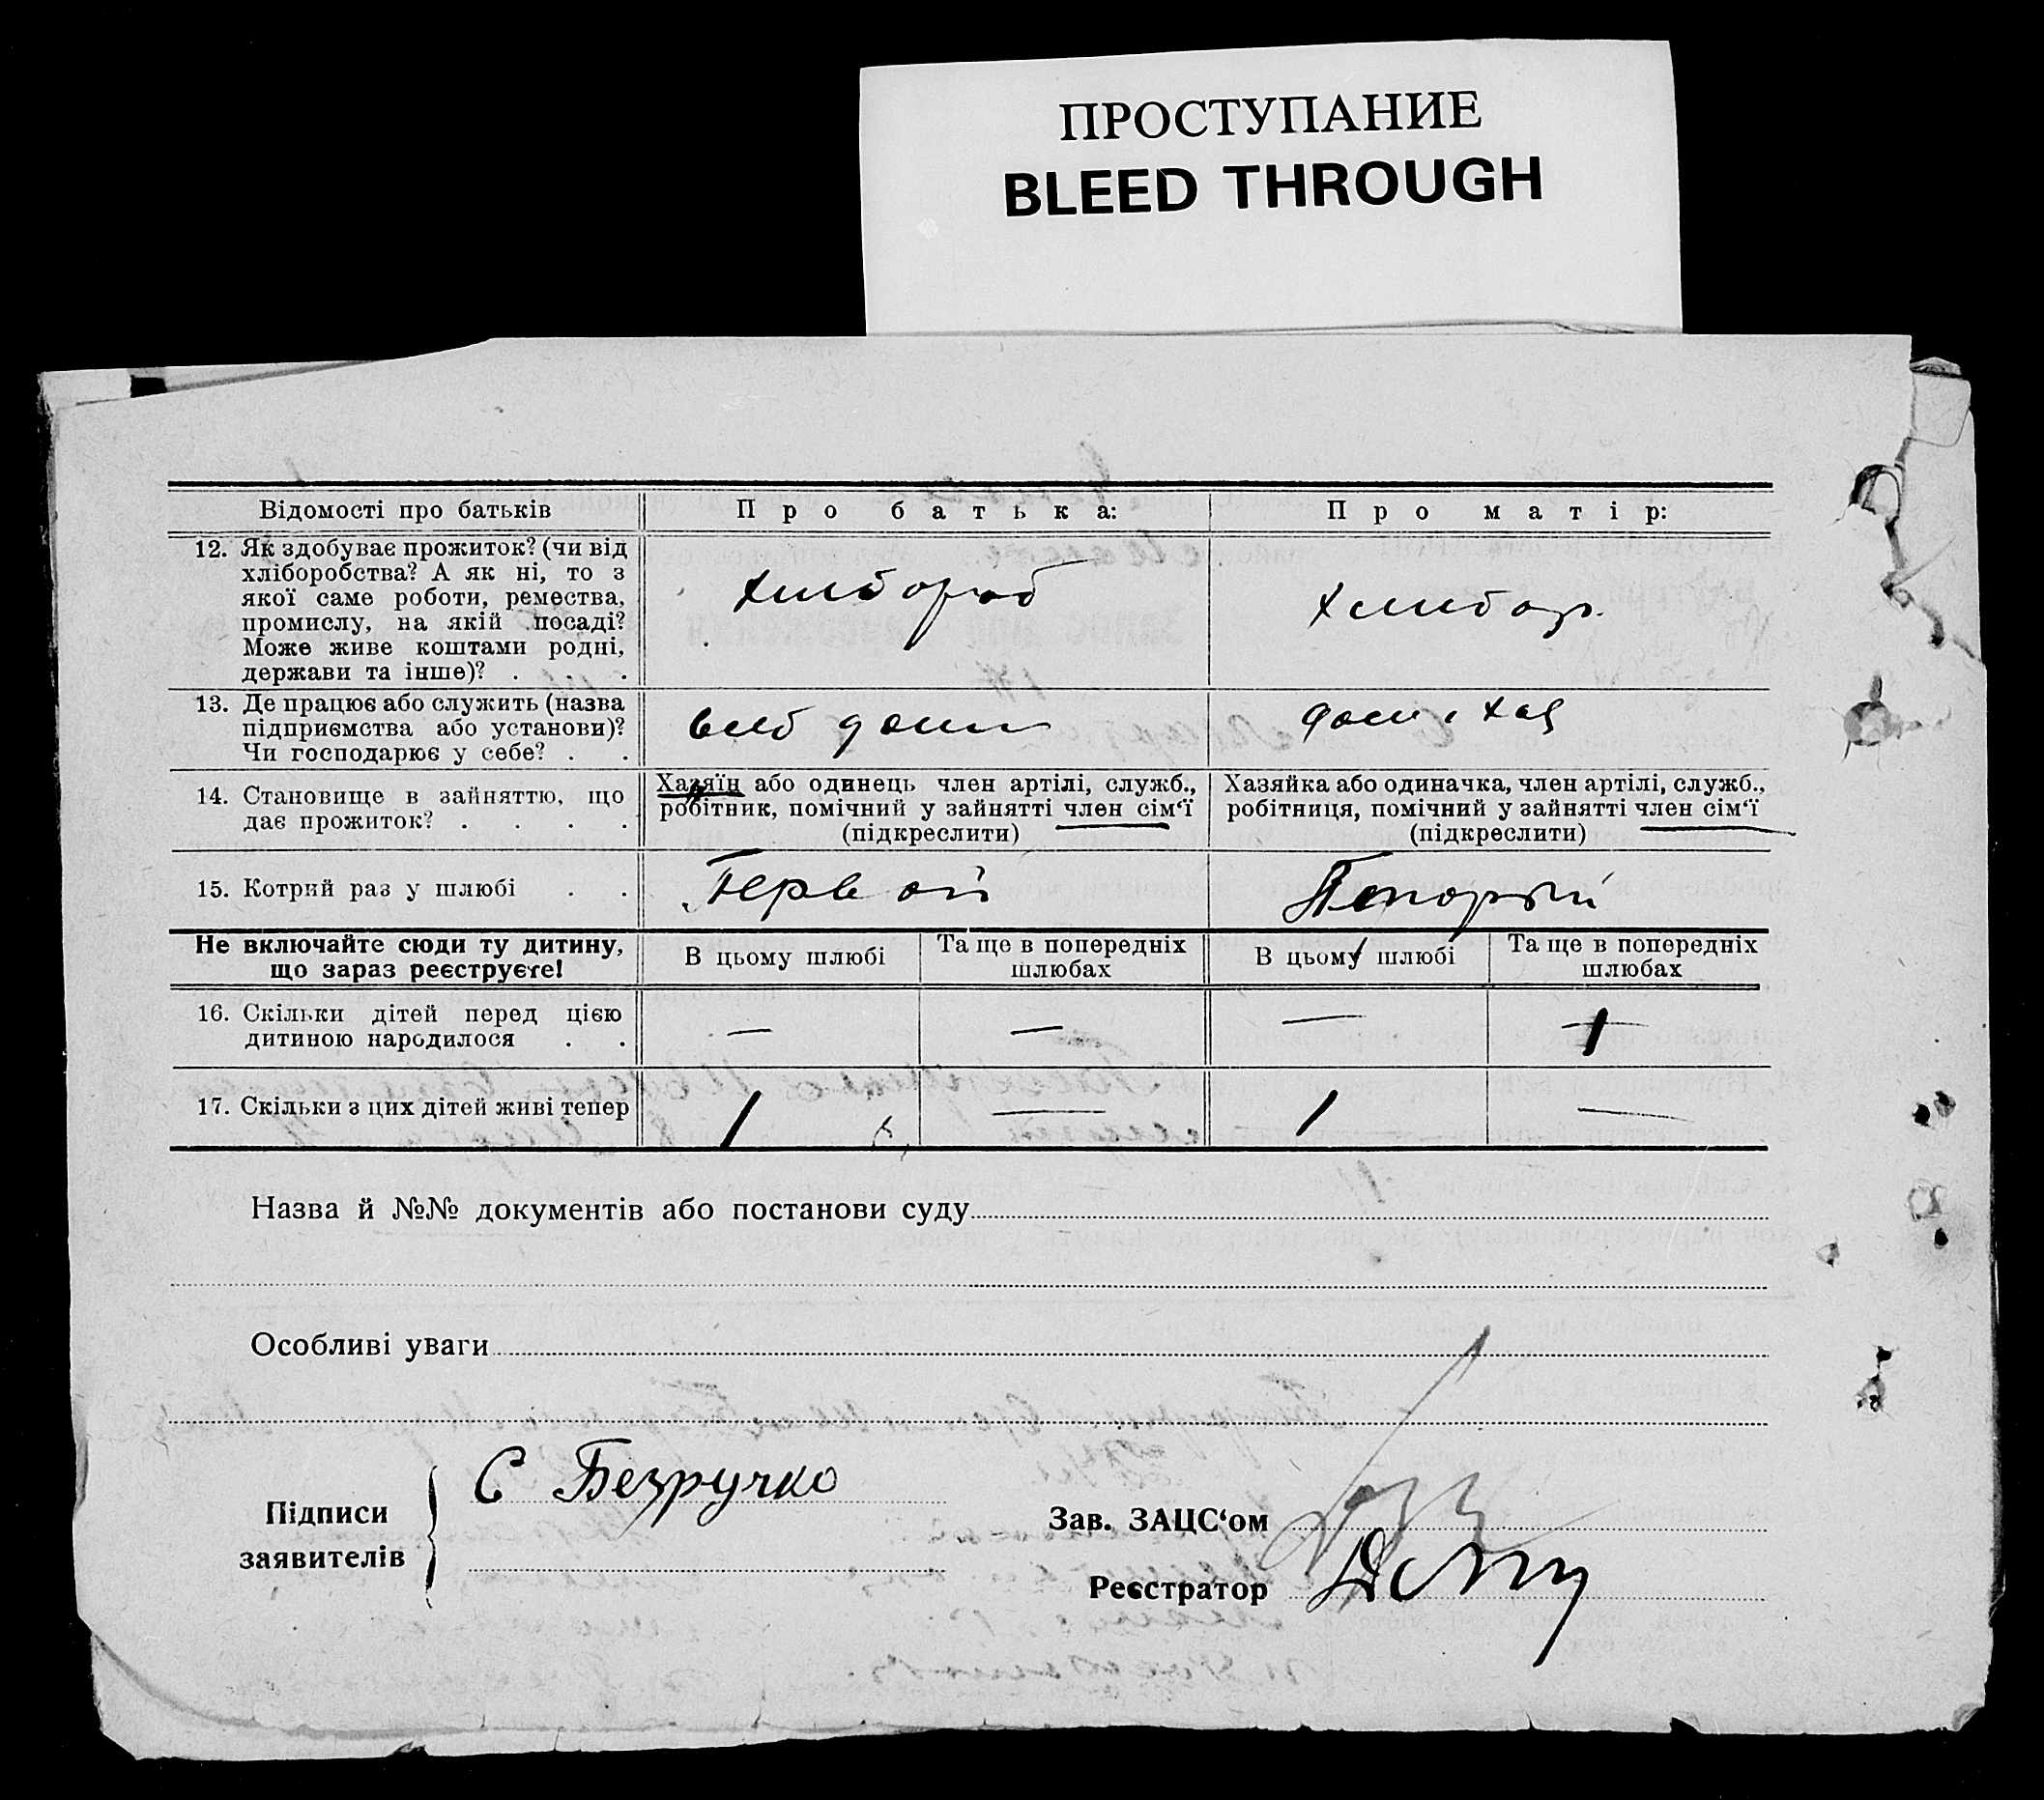 ПРОСТУПАНИЕ
BLEED THROUGH
Відомості про батьків
Про батька:
Про матір:
12. Як здобуває прожиток? (чи від
хліборобства? А як ні, то з
якої саме роботи, ремества,
промислу, на якій посаді?
Може живе коштами родні,
держави та інше)? . . .
хлибороб
хлибор.
13. Де працює або служить (назва
підприємства або установи)?
Чи господарює у себе? . .
дом
14. Становище в зайняттю, що
дає прожиток? . . . .
Хазяїн або одинець член артілі, служб.,
робітник, помічний у зайнятті член сім‘ї
(підкреслити)
Хазяйка або одиначка, член артілі, служб.,
робітниця, помічний у зайнятті член сім‘ї
(підкреслити)
15. Котрий раз у шлюбі . .
Первой
Не включайте сюди ту дитину,
що зараз реєструєте!
В цьому шлюбі
Та ще в попередніх
шлюбах
В цьому шлюбі
Та ще в попередніх
шлюбах
16. Скільки дітей перед цією
дитиною народилося . .
— — — 1
17. Скільки з цих дітей живі тепер
1 — 1 —
Назва й №№ документів або постанови суду
Особливі уваги
Підписи
заявителів
С Безручко
Зав. ЗАЦС‘ом
Реєстратор